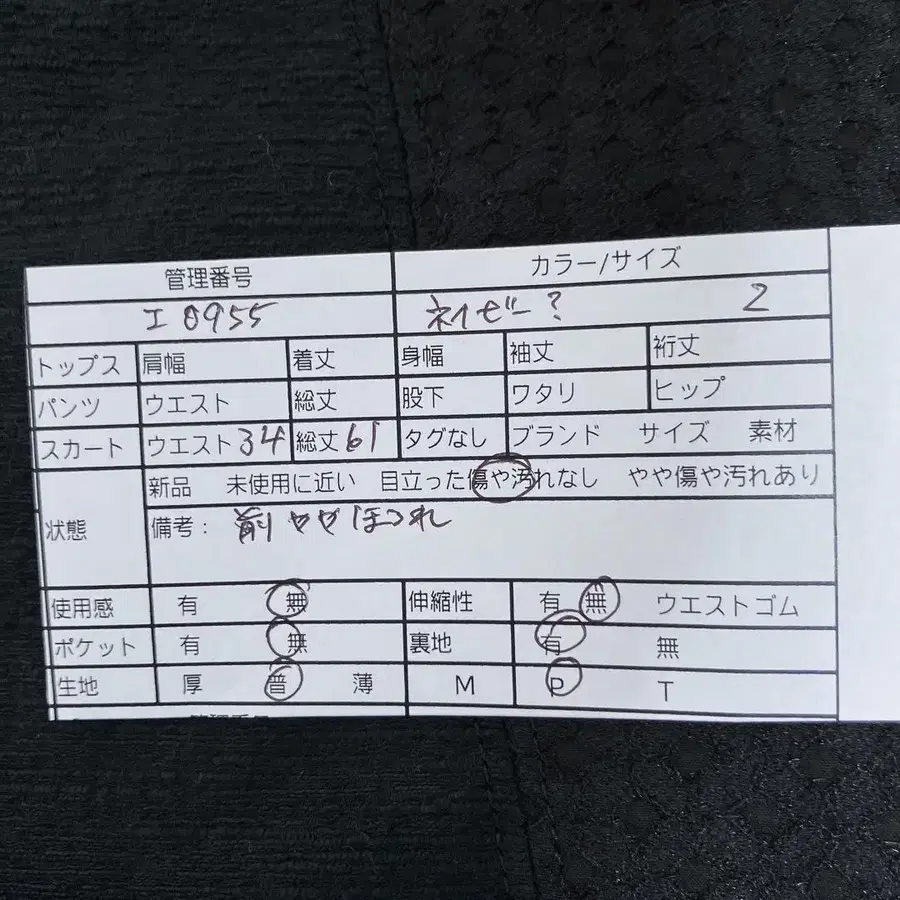 管理番号 カラー/サイズ
I0955 ネイビー? 2
トップス 肩幅 着丈 身幅 袖丈 裄丈
パンツ ウエスト 総丈 股下 ワタリ ヒップ
スカート ウエスト34 総丈61 タグなし ブランド サイズ 素材
新品 未使用に近い 目立った傷や汚れなし やや傷や汚れあり
状態 備考: 前ややほつれ
使用感 有 無 伸縮性 有 無 ウエストゴム
ポケット 有 無 裏地 有 無
生地 厚 普 薄 M P T
管理番号